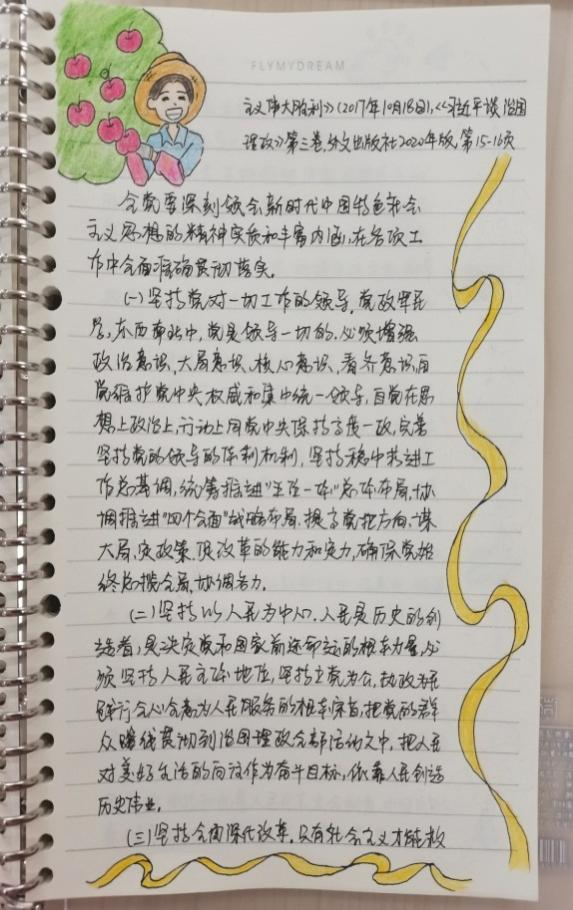 FLYMYDREAM
主义伟大胜利》(2017年10月18日),《习近平谈治国
理政》第三卷,外文出版社2020年版,第15-16页
全党要深刻领会新时代中国特色社会
主义思想的精神实质和丰富内涵,在各项工
作中全面准确贯彻落实。
(一)坚持党对一切工作的领导。党政军民
学,东西南北中,党是领导一切的。必须增强
政治意识、大局意识、核心意识、看齐意识,自
觉维护党中央权威和集中统一领导,自觉在思
想上政治上,行动上同党中央保持高度一致,完善
坚持党的领导的体制机制,坚持稳中求进工
作总基调,统筹推进“五位一体”总体布局,协
调推进“四个全面”战略布局,提高党把方向、谋
大局、定政策、促改革的能力和定力,确保党始
终总揽全局,协调各方。
(二)坚持以人民为中心。人民是历史的创
造者,是决定党和国家前途命运的根本力量。必
须坚持人民主体地位,坚持立党为公、执政为民
践行全心全意为人民服务的根本宗旨,把党的群
众路线贯彻到治国理政全部活动之中,把人民
对美好生活的向往作为奋斗目标,依靠人民创造
历史伟业。
(三)坚持全面深化改革。只有社会主义才能救